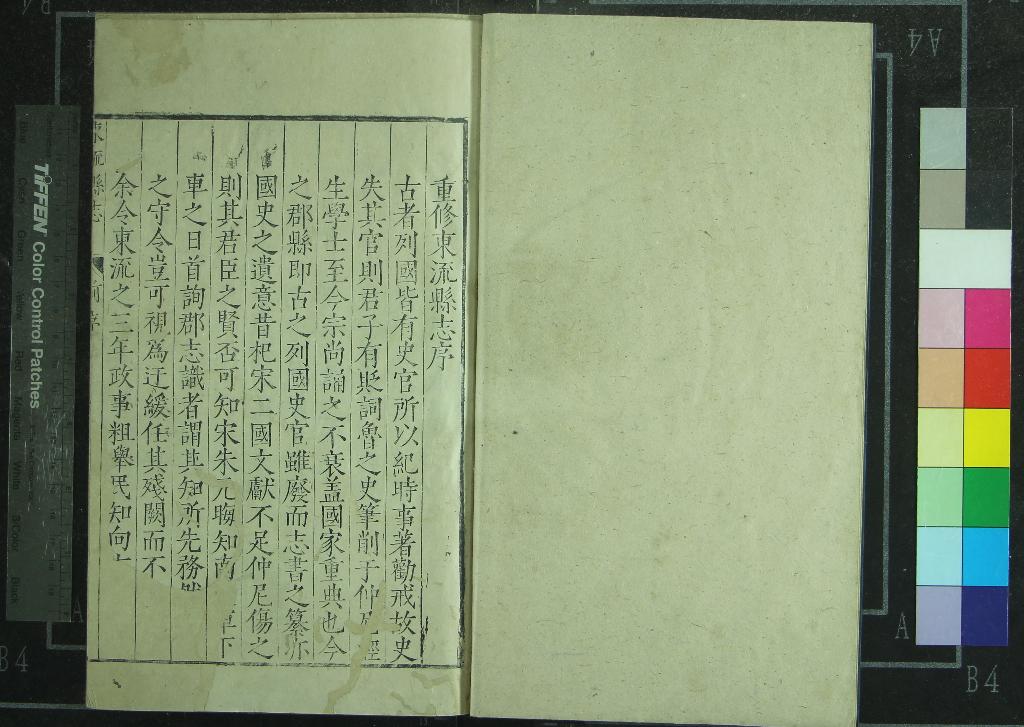 重修東流縣志序
古者列國皆有史官所以紀時事著勸戒故史
失其官則君子有貶詞魯之史筆削于仲尼經
生學士至今宗尚誦之不衰盖國家重典也今
之郡縣即古之列國史官雖廢而志書之纂亦
國史之遺意昔杞宋二國文獻不足仲尼傷之
則其君臣之賢否可知宋朱元晦知南 下
車之日首詢郡志識者謂其知所先務
之守令豈可視爲迂緩任其殘闕而不
余令東流之三年政事粗舉民知向
東流縣志 前序
TIFFEN Color Control Patches
A4
A
B4
B4